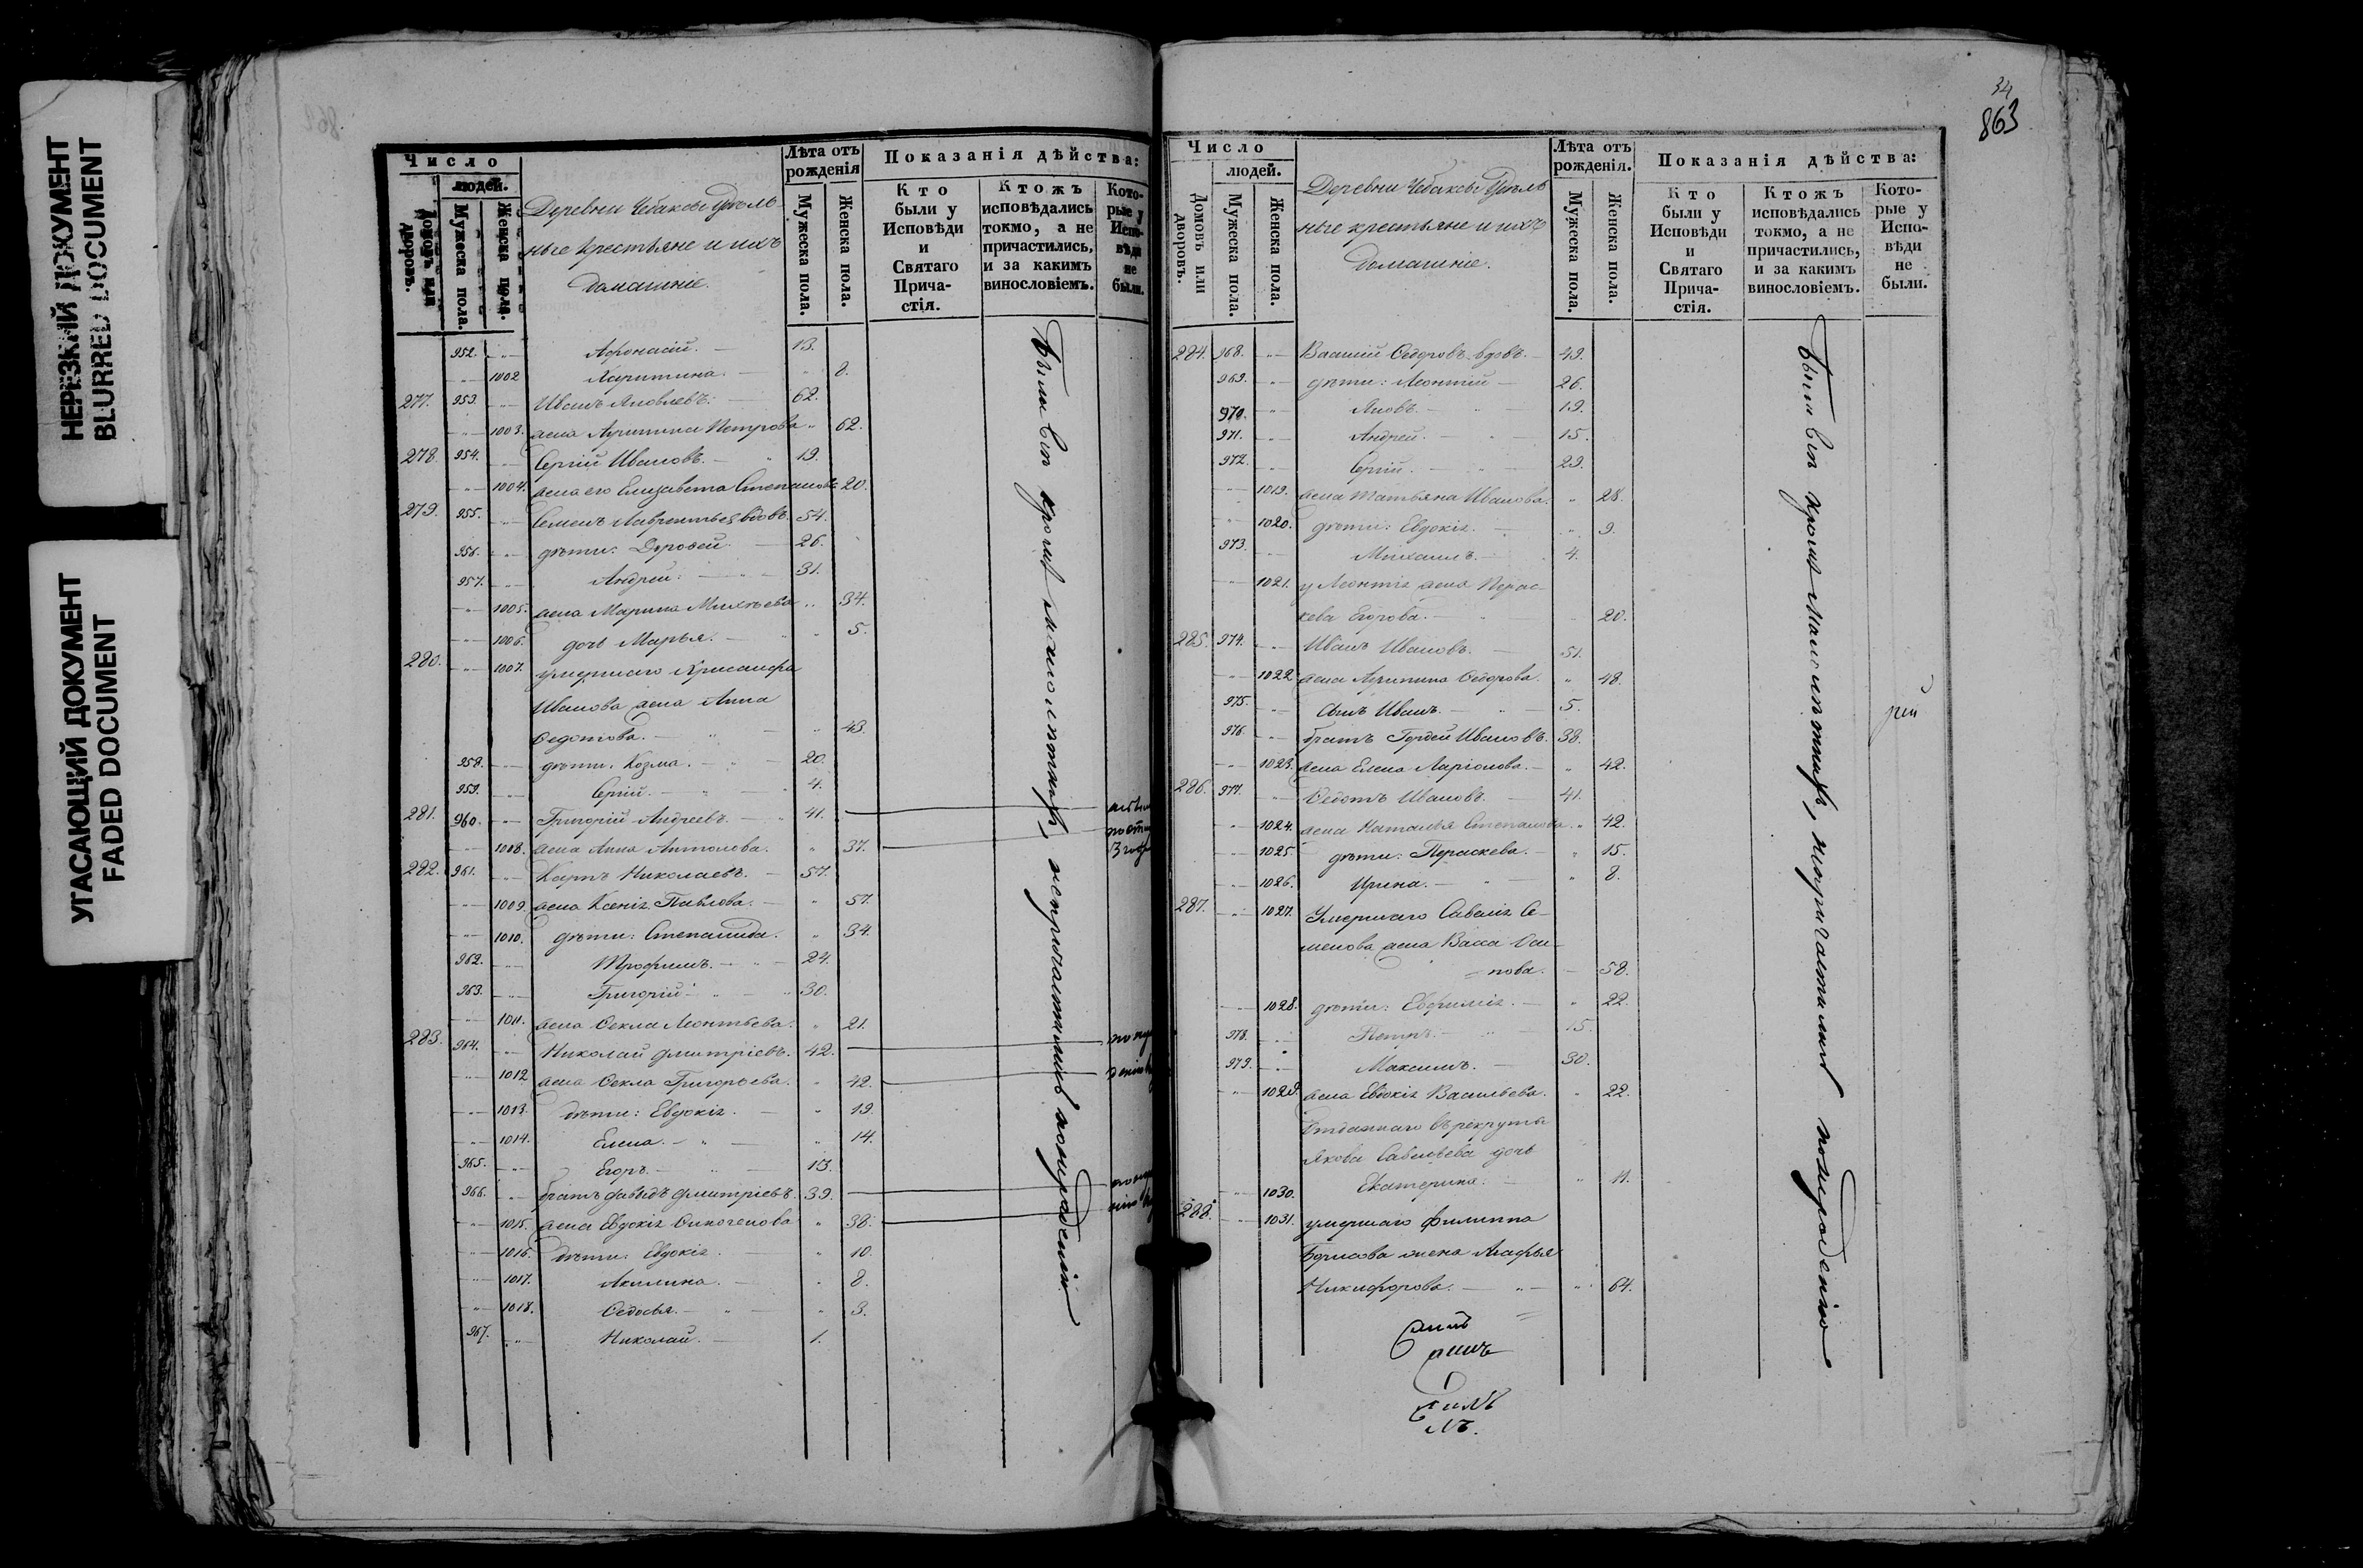 НЕРЕЗКИЙ ДОКУМЕНТ
BLURRED DOCUMENT
УГАСАЮЩИЙ ДОКУМЕНТ
FADED DOCUMENT
Число
людей.
Домовъ или дворовъ.
Мужеска пола.
Женска пола.
Деревни Чебаксы Удѣль-
ные крестьяне и ихъ
домашніе.
Лѣта отъ рожденія
Мужеска пола.
Женска пола.
Показанія дѣйства:
Кто были у Исповѣди и Святаго Прича-стія.
Ктожъ исповѣдались токмо, а не причастились, и за какимъ винословіемъ.
Кото-рые у Испо-вѣди не были.
952. Афонасій. 13.
1002 Харитина. 8.
277. 953. Иванъ Яковлевъ. 62.
1003. жена Петрова 62.
278. 954. Сергій Ивановъ. 19.
1004. жена его Елизавета Степанова 20.
279. 955. Семенъ Лаврентьев вдовъ. 54.
956. дѣти: Дорофей. 26.
957. Андрей: 31.
1005. жена Марина 34.
1006. дочь Марья. 5.
280. 1007. умершаго Хрисанфа
Иванова жена Анна
Федотова. 43.
958. дѣти: Козма. 20.
959. Сергій. 4.
281. 960. Григорій Андреевъ. 41.
1008. жена Анна Антонова. 37.
282. 961. Карпъ Николаевъ. 57.
1009. жена Ксенія Павлова. 57.
1010. дѣти: Степанида. 34.
962. Трофимъ. 24.
963. Григорій 30.
1011. жена Фекла Леонтьева. 21.
283. 964. Николай Дмитріевъ. 42.
1012 жена Фекла Григорьева. 42.
1013. дѣти: Евдокія. 19.
1014. Елена. 14.
965. Егоръ. 13.
966. братъ Давыдъ Дмитріевъ. 39.
1015. жена Евдокія 38.
1016. дѣти: Евдокія. 10.
1017. Акилина. 8.
1018. Федосья. 3.
967. Николай. 1.
Были вси кромѣ малолѣтнихъ, непричастились по нерадѣнію
34
863
Число
людей.
Домовъ или дворовъ.
Мужеска пола.
Женска пола.
Деревни Чебаксы Удѣль
ные крестьяне и ихъ
домашніе.
Лѣта отъ рожденія.
Мужеска пола.
Женска пола.
Показанія дѣйства:
Кто были у Исповѣди и Святаго Прича-стія.
Ктожъ исповѣдались токмо, а не причастились, и за какимъ винословіемъ.
Кото-рые у Испо-вѣди не были.
284. 968. Василій Федоровъ вдовъ. 49.
969. дѣти: Леонтій 26.
970. Яковъ. 19.
971. Андрей. 15.
972. Сергій. 29.
1019. жена Татьяна Иванова. 28.
1020. дѣти: Евдокія. 9.
973. Михаилъ. 4.
1021. у Леонтія жена Парас-
кева Егорова. 20.
285. 974. Иванъ Ивановъ. 51.
1022 жена Федорова. 48.
975. сынъ Иванъ. 5.
976. братъ Гордей Ивановъ. 38.
1023. жена Елена Ларіонова. 42.
286. 977. Федотъ Ивановъ. 41.
1024. жена Наталья Степанова. 42.
1025. дѣти: Параскева. 15.
1026. Ирина. 8.
287. 1027. Умершаго Савелія Се-
менова жена Васса Оси-
пова. 58.
1028. дѣти: Евфимія. 22.
978. Петръ. 15.
979. Максимъ. 30.
1029. жена Евдокія Васильева. 22.
Отданнаго въ рекруты
Якова Савельева дочь
1030. Екатерина. 11.
288. 1031. умершаго Филиппа
Борисова жена Агафья
Никифорова. 64.
Были вси кромѣ малолѣтнихъ, непричастились по нерадѣнію
рей